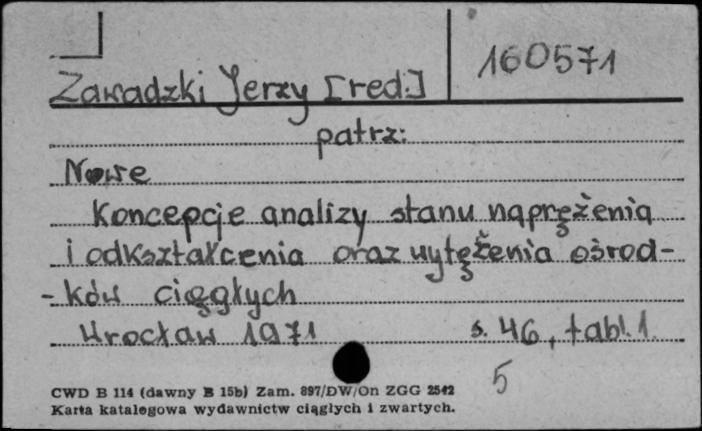 160571
Zawadzki Jerzy [red.]
patrz:
Nowe
Koncepcje analizy stanu naprężenia
i odkształcenia oraz wytężenia ośrod-
-ków ciągłych
Wrocław 1971 s. 46, tabl. 1.
5
CWD B 114 (dawny B 15b) Zam. 897/DW/On ZGG 2542
Karta katalogowa wydawnictw ciągłych i zwartych.